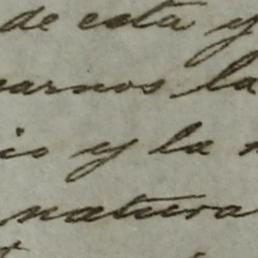 de esta y
arnos la
io y la
natura